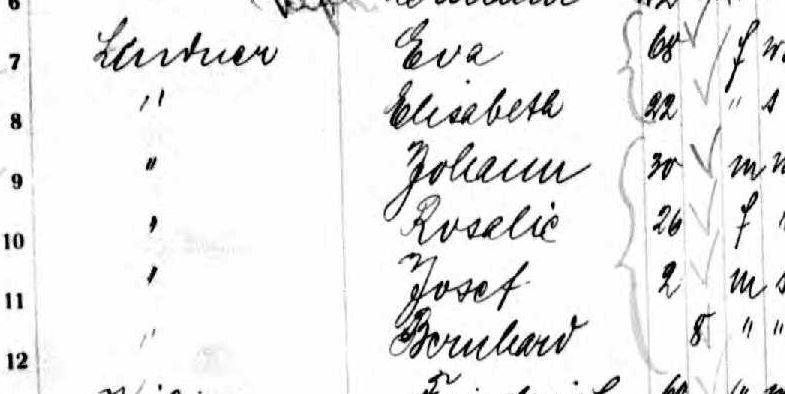 7 Lindner Eva 68 f w
8 " Elisabeth 22 " s
9 " Johann 30 m m
10 " Rosalie 26 f
11 " Josef 2 m s
12 " Bernhard 8 " "